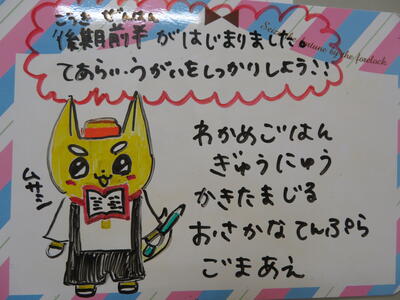 こうき ぜんはん
後期前半がはじまりました。
てあらい・うがいをしっかりしよう!!
わかめごはん
ぎゅうにゅう
かきたまじる
おさかなてんぷら
ごまあえ
ムサシ